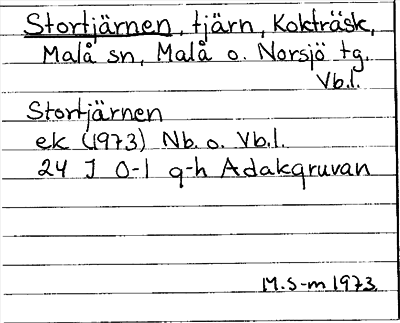 Stortjärnen, tjärn, Kokträsk,
Malå sn, Malå o. Norsjö tg.
Vb.l.
Stortjärnen
ek (1973) Nb. o. Vb.l.
24 J 0-1 g-h Adakgruvan
M.S-m 1973